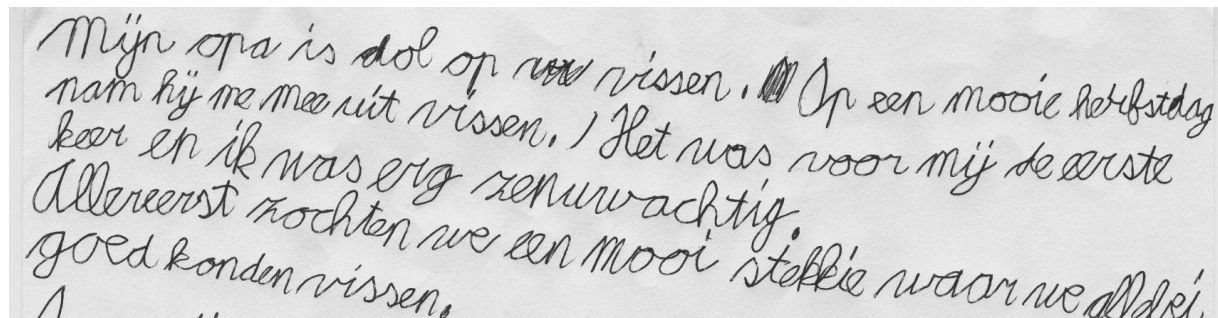 Mijn opa is dol op vissen. Op een mooie herfstdag
nam hij me mee uit vissen. Het was voor mij de eerste
keer en ik was erg zenuwachtig.
Allereerst zochten we een mooi stekkie waar we
goed konden vissen.